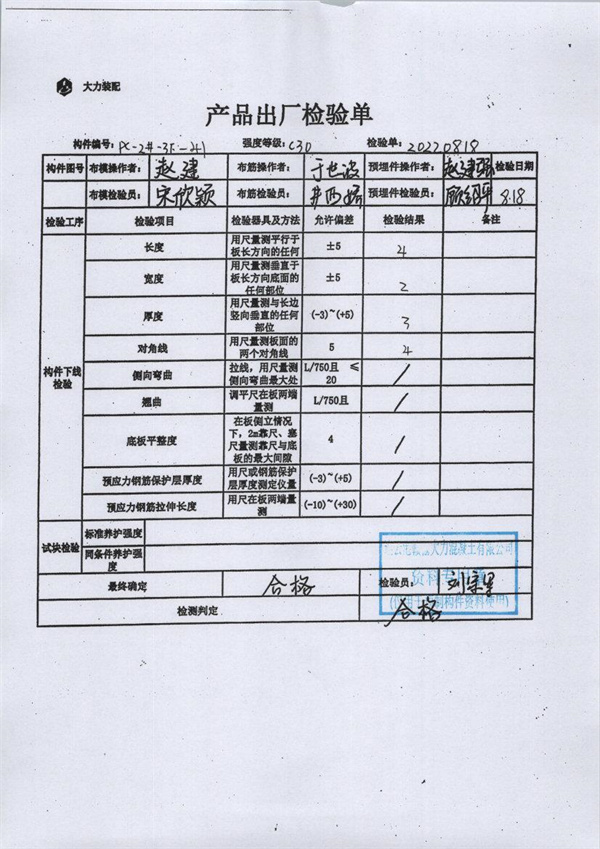 大力装配
产品出厂检验单
构件编号: PC-2#-3F-4-1 强度等级: C30 检验单: 20220818
构件图号 布模操作者: 赵建 布筋操作者: 于世波 预埋件操作者: 赵建强 检验日期
布模检验员: 宋欣颖 布筋检验员: 预埋件检验员: 8.18
检验工序 检验项目 检验器具及方法 允许偏差 检验结果 备注
构件下线检验
长度 用尺量测平行于板长方向的任何 ±5 4
宽度 用尺量测垂直于板长方向底面的任何部位 ±5 2
厚度 用尺量测与长边竖向垂直的任何部位 (-3)~(+5) 3
对角线 用尺量测板面的两个对角线 5 4
侧向弯曲 拉线，用尺量测侧向弯曲最大处 L/750且 ≤20 /
翘曲 调平尺在板两端量测 L/750且 /
底板平整度 在板侧立情况下，2m靠尺、塞尺量测靠尺与底板的最大间隙 4 /
预应力钢筋保护层厚度 用尺或钢筋保护层厚度测定仪量 (-3)~(+5) /
预应力钢筋拉伸长度 用尺在板两端量测 (-10)~(+30) /
试块检验 标准养护强度
同条件养护强度
大力混凝土有限公司
资料专
构件资料使用)
最终确定 合格 检验员:
检测判定 合格